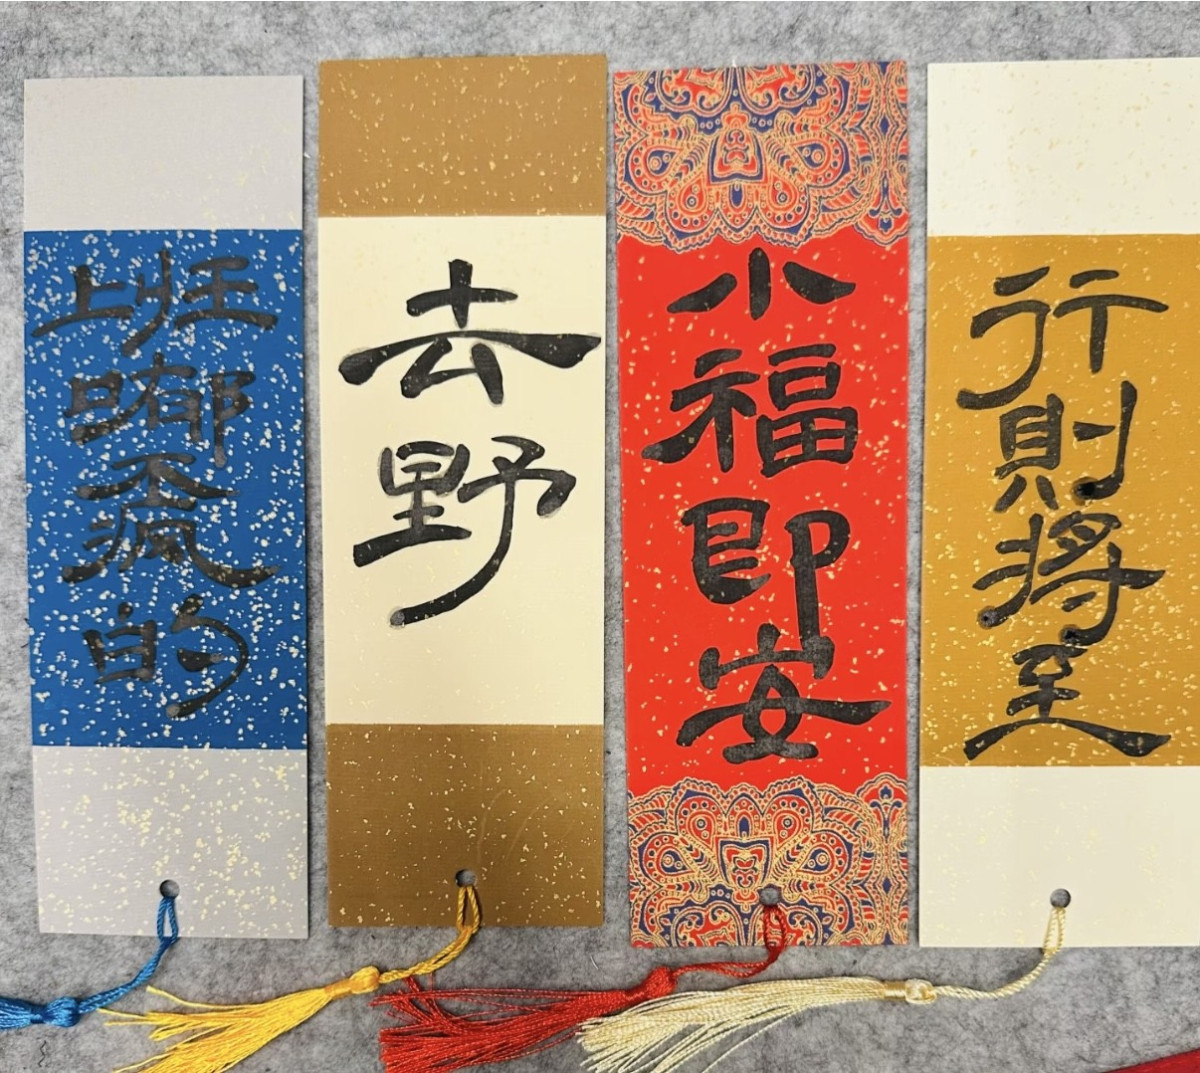 上班哪有不疯的
去野
小福即安
行則將至